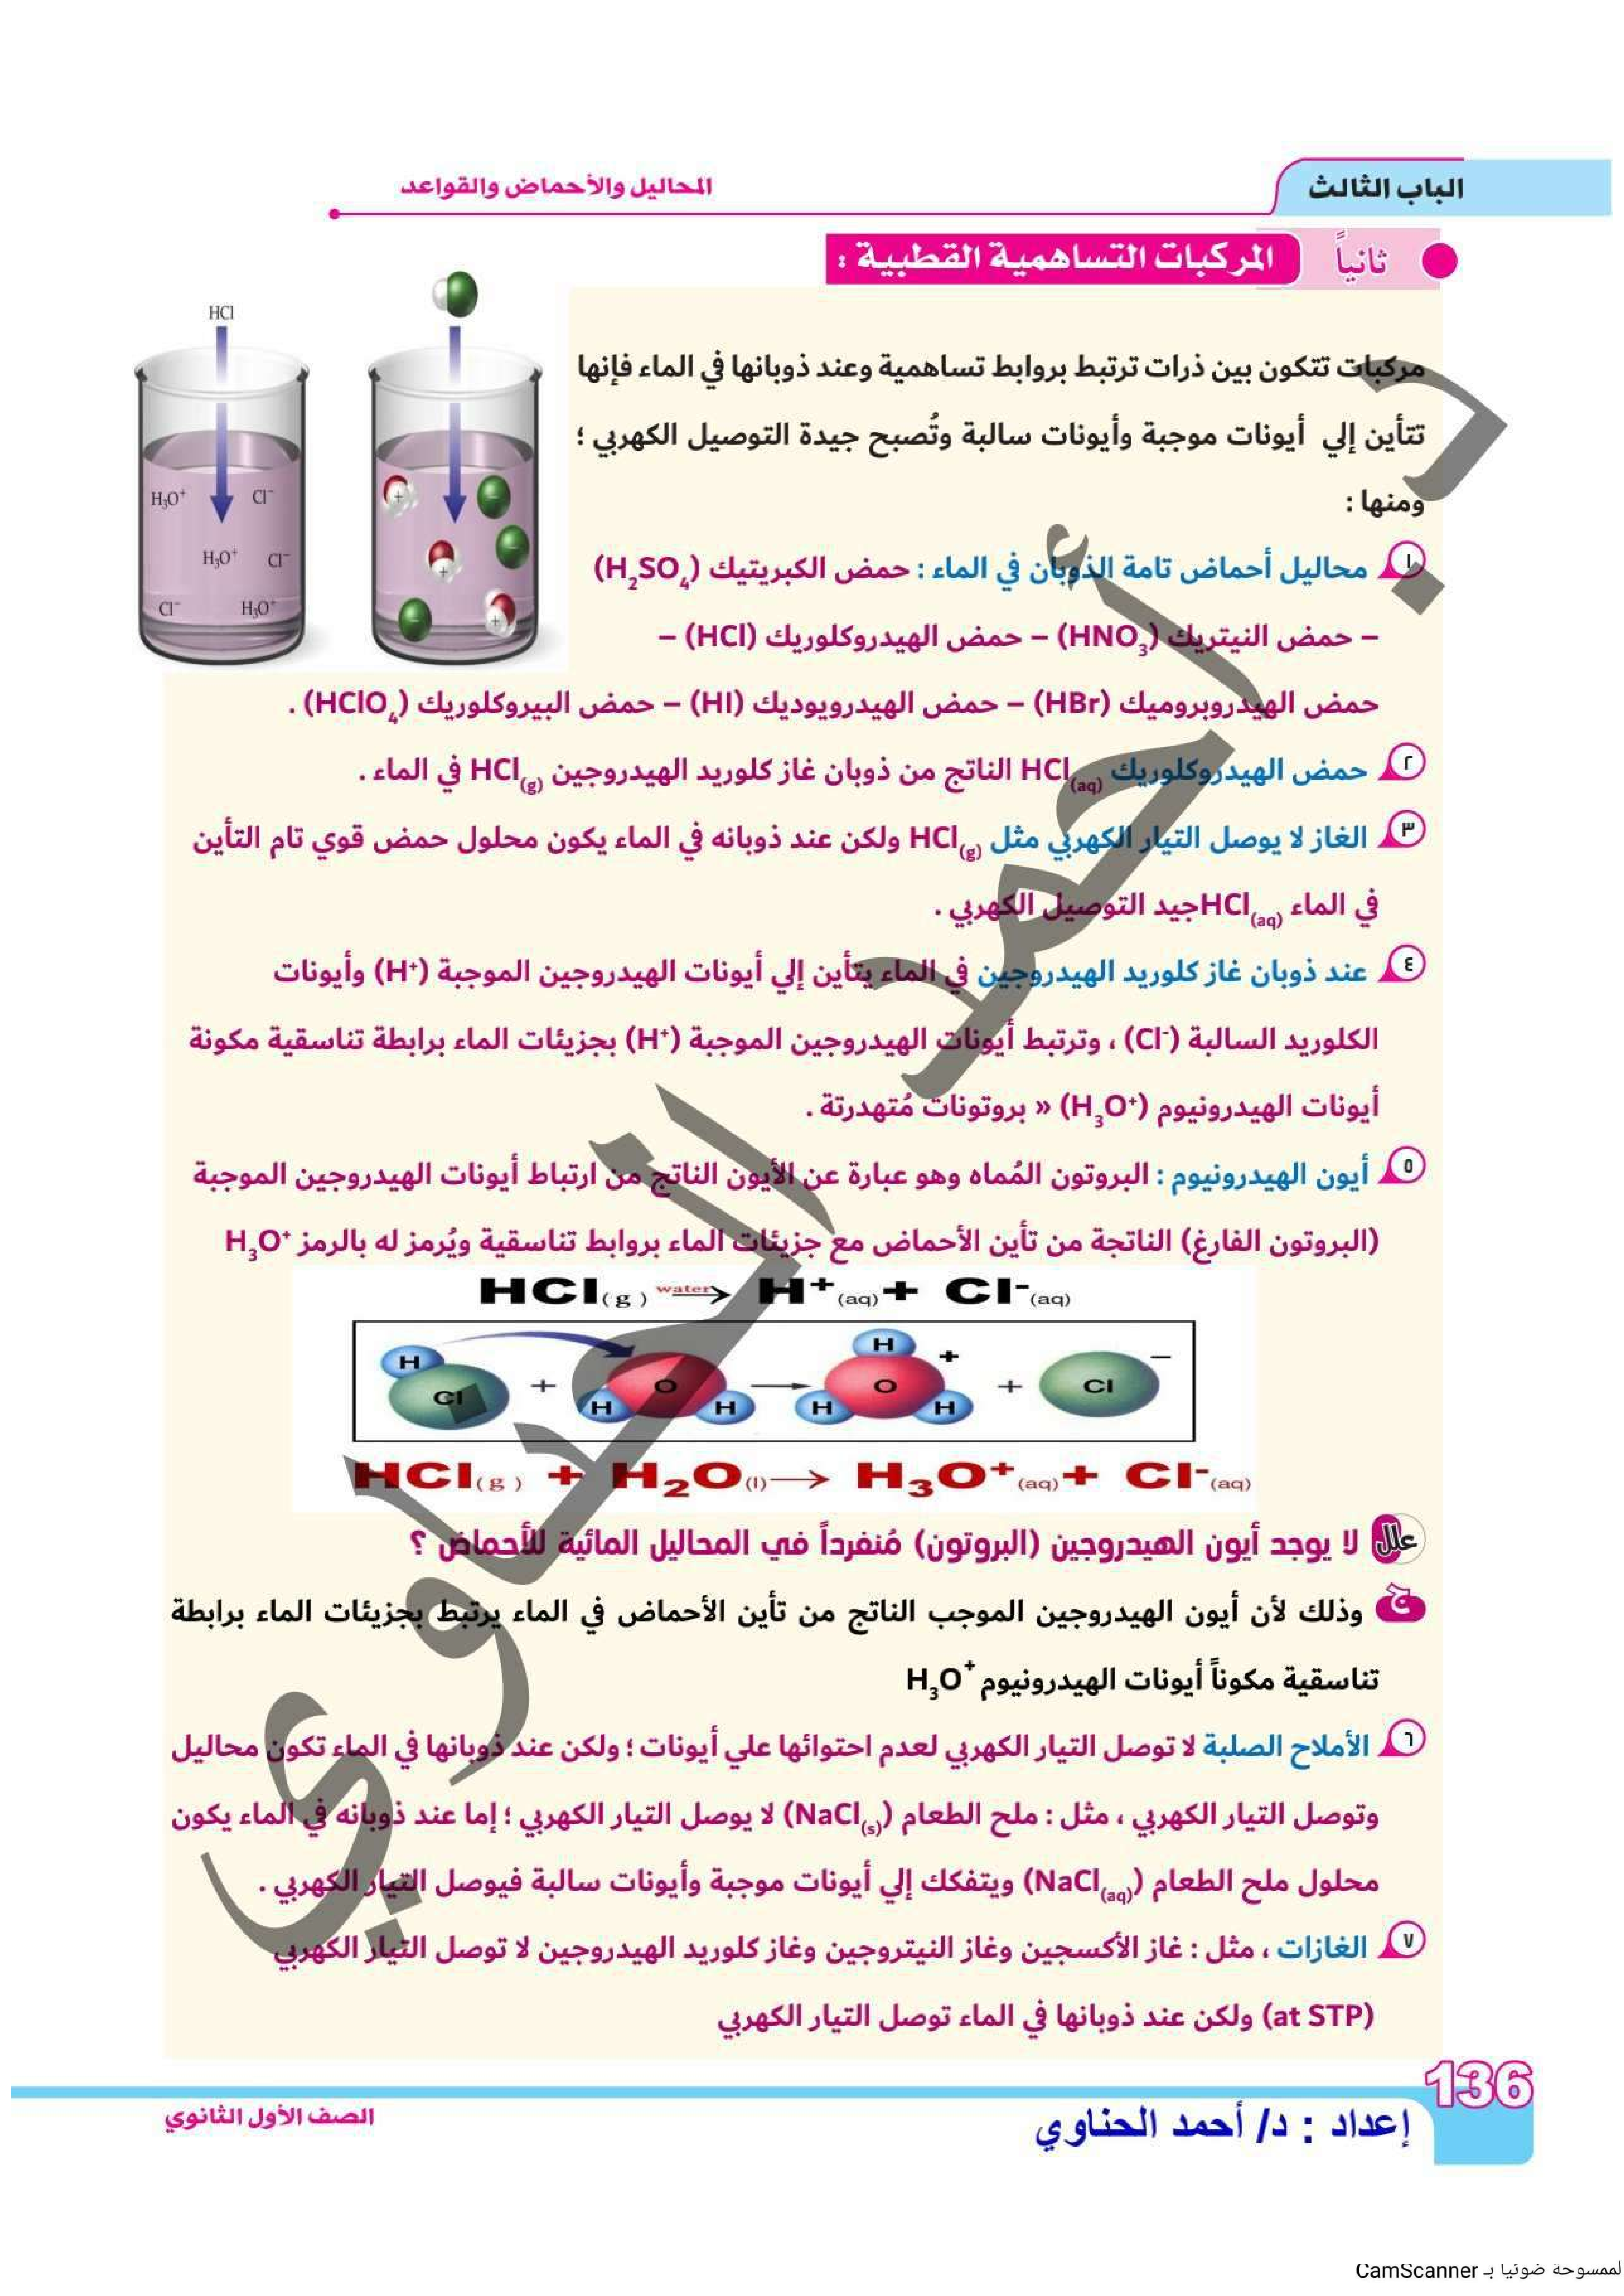 الباب الثالث
المحاليل والأحماض والقواعد
ثانياً المركبات التساهمية القطبية :
مركبات تتكون بين ذرات ترتبط بروابط تساهمية وعند ذوبانها في الماء فإنها
تتأين إلي أيونات موجبة وأيونات سالبة وتُصبح جيدة التوصيل الكهربي ؛
ومنها :
HCl
H₃O⁺ Cl⁻
H₃O⁺ Cl⁻
Cl⁻ H₃O⁺
١ محاليل أحماض تامة الذوبان في الماء : حمض الكبريتيك (H₂SO₄)
– حمض النيتريك (HNO₃) – حمض الهيدروكلوريك (HCl) –
حمض الهيدروبروميك (HBr) – حمض الهيدرويوديك (HI) – حمض البيروكلوريك (HClO₄) .
٢ حمض الهيدروكلوريك HCl(aq) الناتج من ذوبان غاز كلوريد الهيدروجين HCl(g) في الماء .
٣ الغاز لا يوصل التيار الكهربي مثل HCl(g) ولكن عند ذوبانه في الماء يكون محلول حمض قوي تام التأين
في الماء HCl(aq)جيد التوصيل الكهربي .
٤ عند ذوبان غاز كلوريد الهيدروجين في الماء يتأين إلي أيونات الهيدروجين الموجبة (H⁺) وأيونات
الكلوريد السالبة (Cl⁻) ، وترتبط أيونات الهيدروجين الموجبة (H⁺) بجزيئات الماء برابطة تناسقية مكونة
أيونات الهيدرونيوم (H₃O⁺) « بروتونات مُتهدرتة .
٥ أيون الهيدرونيوم : البروتون المُماه وهو عبارة عن الأيون الناتج من ارتباط أيونات الهيدروجين الموجبة
(البروتون الفارغ) الناتجة من تأين الأحماض مع جزيئات الماء بروابط تناسقية ويُرمز له بالرمز H₃O⁺
HCl(g) water→ H⁺(aq) + Cl⁻(aq)
H H + −
Cl + O → O + Cl
H H H H
HCl(g) + H₂O(l) → H₃O⁺(aq) + Cl⁻(aq)
علل لا يوجد أيون الهيدروجين (البروتون) مُنفرداً في المحاليل المائية للأحماض ؟
ج وذلك لأن أيون الهيدروجين الموجب الناتج من تأين الأحماض في الماء يرتبط بجزيئات الماء برابطة
تناسقية مكوناً أيونات الهيدرونيوم H₃O⁺
٦ الأملاح الصلبة لا توصل التيار الكهربي لعدم احتوائها علي أيونات ؛ ولكن عند ذوبانها في الماء تكون محاليل
وتوصل التيار الكهربي ، مثل : ملح الطعام (NaCl(s)) لا يوصل التيار الكهربي ؛ إما عند ذوبانه في الماء يكون
محلول ملح الطعام (NaCl(aq)) ويتفكك إلي أيونات موجبة وأيونات سالبة فيوصل التيار الكهربي .
٧ الغازات ، مثل : غاز الأكسجين وغاز النيتروجين وغاز كلوريد الهيدروجين لا توصل التيار الكهربي
(at STP) ولكن عند ذوبانها في الماء توصل التيار الكهربي
د. أحمد الحناوي
136
إعداد : د/ أحمد الحناوي
الصف الأول الثانوي
الممسوحة ضوئيا بـ CamScanner